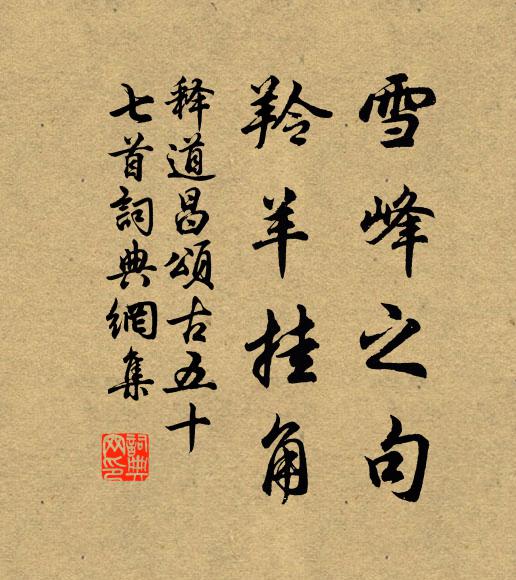 雪峰之句
羚羊挂角
释道昌頌古五十
七首詞典網集
詞典網印